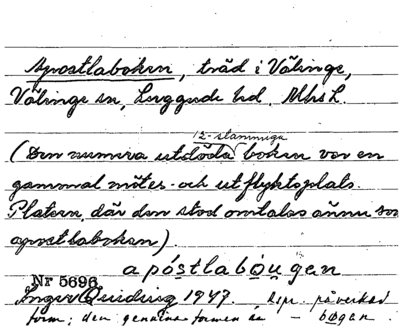 Apostlaboken, träd i Välinge,
Välinge sn, Luggude hd. Mhs L.
12-stammiga
(Den numera utdöda boken var en
gammal mötes- och utflyktsplats.
Platsen, där den stod omtalas ännu som
apostlaboken).
apóstlabo̯u̯gan
Nr 5696
Ingvor Quiding 1947. påverkad
form; den genuina formen är - bogan.